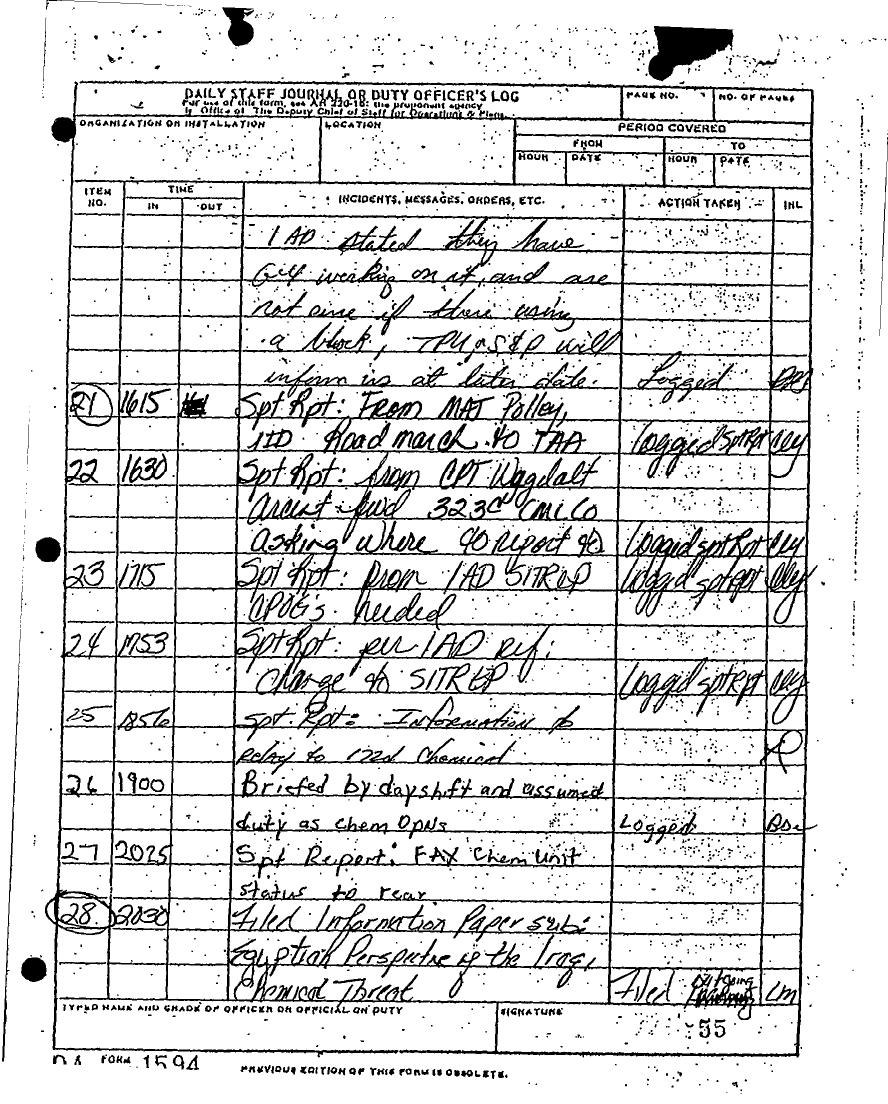 DAILY STAFF JOURNAL OR DUTY OFFICER'S LOG
For use of this form, see AR 220-15; the proponent agency
is Office of The Deputy Chief of Staff for Operations & Plans.
PAGE NO.
NO. OF PAGES
ORGANIZATION OR INSTALLATION
LOCATION
PERIOD COVERED
FROM
TO
HOUR
DATE
HOUR
DATE
ITEM NO.
TIME
IN
OUT
INCIDENTS, MESSAGES, ORDERS, ETC.
ACTION TAKEN
INL
1 AD stated they have
G-4 working on it, and are
not sure if there using
a block, will
inform us at later date. Logged
21 1615 Spt Rpt: From MAJ Polley,
1ID Road march to TAA logged Spt Rpt
22 1630 Spt Rpt: from CPT
fwd 323d CMLCo
asking where to report to Logged spt Rpt
23 1715 Spt Rpt: from 1AD SITREP Logged spt rpt
CPOG's needed
24 1753 Spt Rpt: per 1AD ref:
Change to SITREP Logged spt rpt
25 1856 spt. Rpt: Information to
relay to 172d Chemical
26 1900 Briefed by dayshift and assumed
duty as Chem OPNS Logged
27 2025 Spt Report: FAX Chem Unit
status to rear
28 2030 Filed Information Paper subj:
Egyptian Perspective of the Iraqi
Chemical Threat Filed outgoing LM
TYPED NAME AND GRADE OF OFFICER OR OFFICIAL ON DUTY
SIGNATURE
55
DA FORM 1594
PREVIOUS EDITION OF THIS FORM IS OBSOLETE.